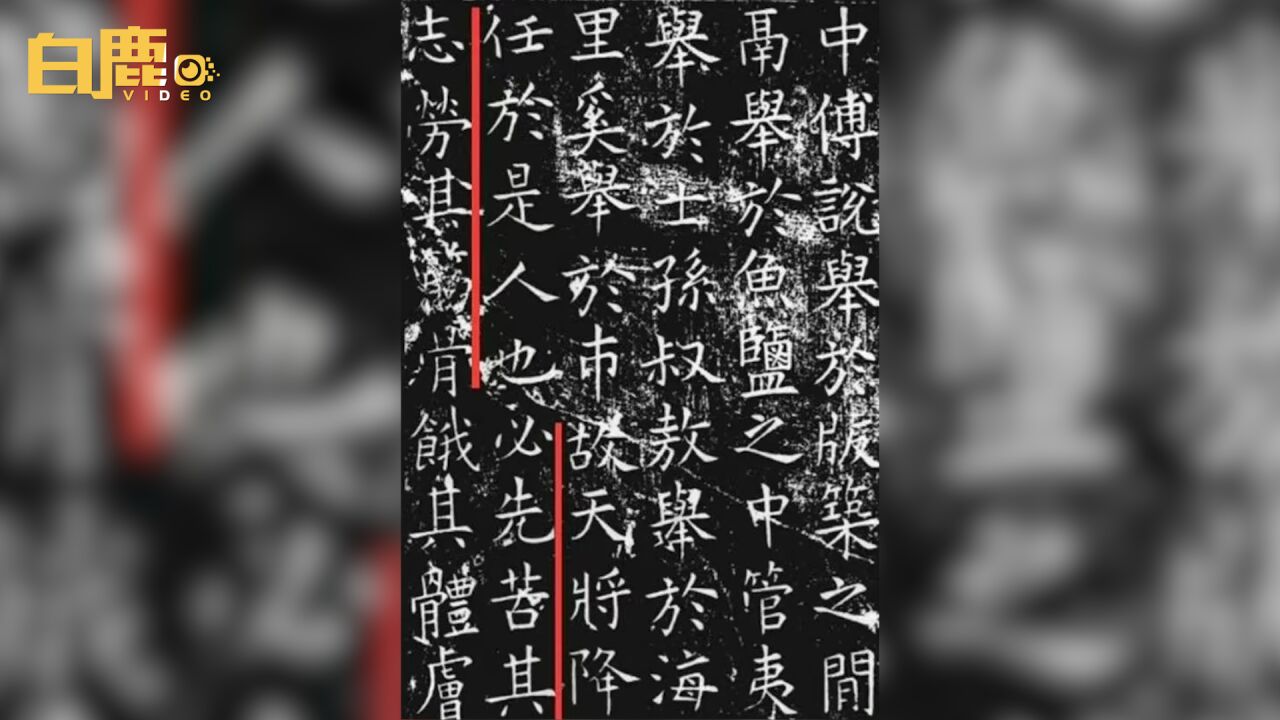 白鹿
VIDEO
中傅說舉於版築之閒
鬲舉於魚鹽之中管夷
舉於士孫叔敖舉於海
里奚舉於市故天將降
任於是人也必先苦其
志勞其骨餓其體膚